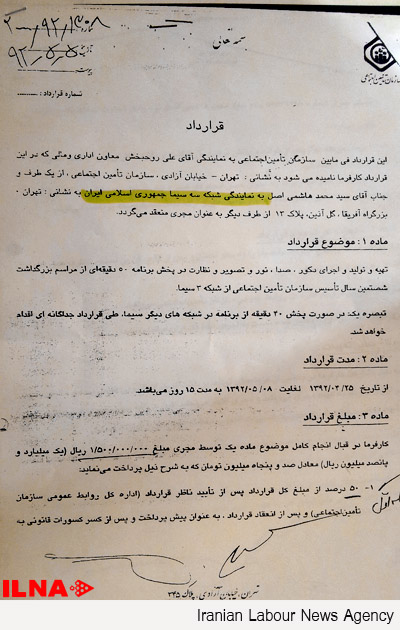 بسمه تعالی
سازمان تأمین اجتماعی
۹۲/۵/۵
شماره قرارداد :
قرارداد
این قرارداد فی مابین سازمان تأمین‌اجتماعی به نمایندگی آقای علی روحبخش معاون اداری ومالی که در این
قرارداد کارفرما نامیده می شود به نشانی : تهران - خیابان آزادی ، سازمان تأمین اجتماعی ، از یک طرف و
جناب آقای سید محمد هاشمی اصل به نمایندگی شبکه سه سیما جمهوری اسلامی ایران به نشانی : تهران ،
بزرگراه آفریقا ، گل آذین، پلاک ۱۲ از طرف دیگر به عنوان مجری منعقد می‌گردد.
ماده ۱: موضوع قرارداد
تهیه و تولید و اجرای دکور ، صدا ، نور و تصویر و نظارت در پخش برنامه ۵۰ دقیقه‌ای از مراسم بزرگداشت
شصتمین سال تأسیس سازمان تأمین اجتماعی از شبکه ۳ سیما.
تبصره یک: در صورت پخش ۲۰ دقیقه از برنامه در شبکه های دیگر سیما، طی قرارداد جداگانه ای اقدام
خواهد شد.
ماده ۲: مدت قرارداد
از تاریخ ۱۳۹۲/۰۲/۲۵ لغایت ۱۳۹۲/۰۵/۰۸ به مدت ۱۵ روز می‌باشد.
ماده ۳: مبلغ قرارداد
کارفرما در قبال انجام کامل موضوع ماده یک توسط مجری مبلغ ۱/۵۰۰/۰۰۰/۰۰۰ ریال (یک میلیارد و
پانصد میلیون ریال) معادل صد و پنجاه میلیون تومان که به شرح ذیل پرداخت می‌نماید:
۱- ۵۰ درصد از مبلغ کل قرارداد پس از تأیید ناظر قرارداد (اداره کل روابط عمومی سازمان
تأمین‌اجتماعی) و پس از انعقاد قرارداد ، به عنوان پیش پرداخت و پس از کسر کسورات قانونی به
تهران، خیابان آزادی، پلاک ۳۴۵
ILNA
Iranian Labour News Agency